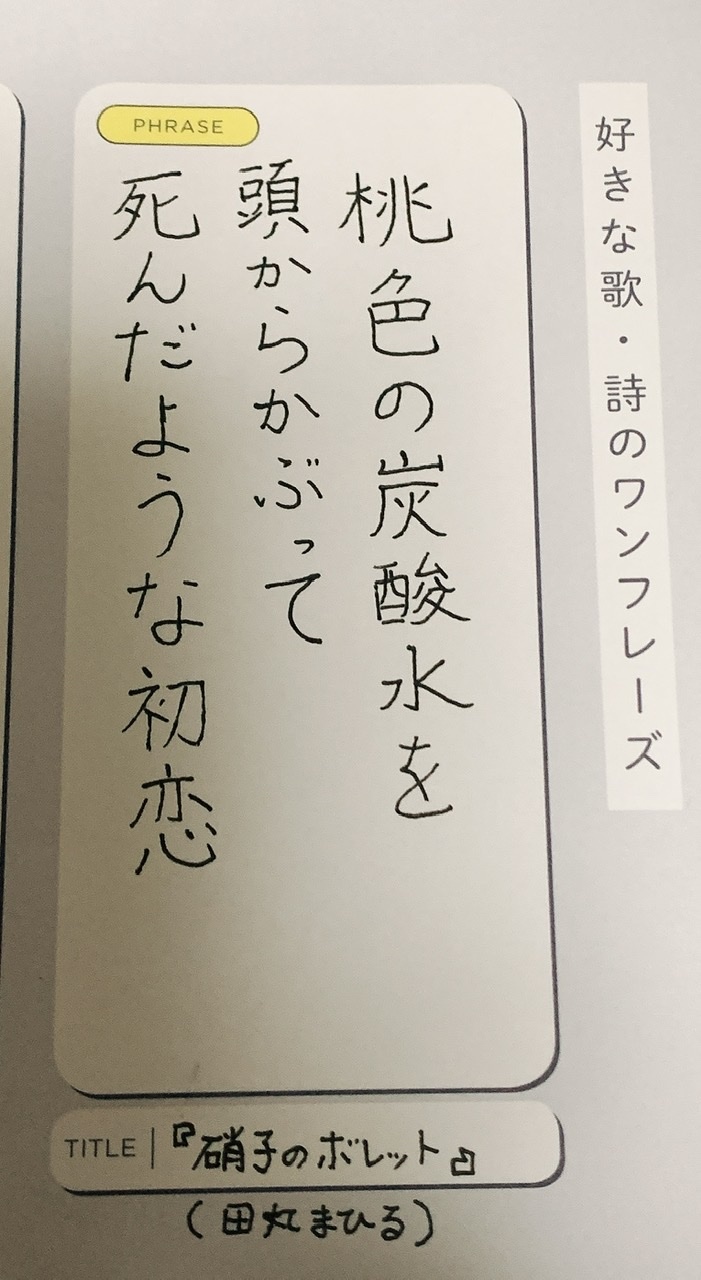 好きな歌・詩のワンフレーズ
PHRASE
桃色の炭酸水を
頭からかぶって
死んだような初恋
TITLE
『硝子のボレット』
(田丸まひる)